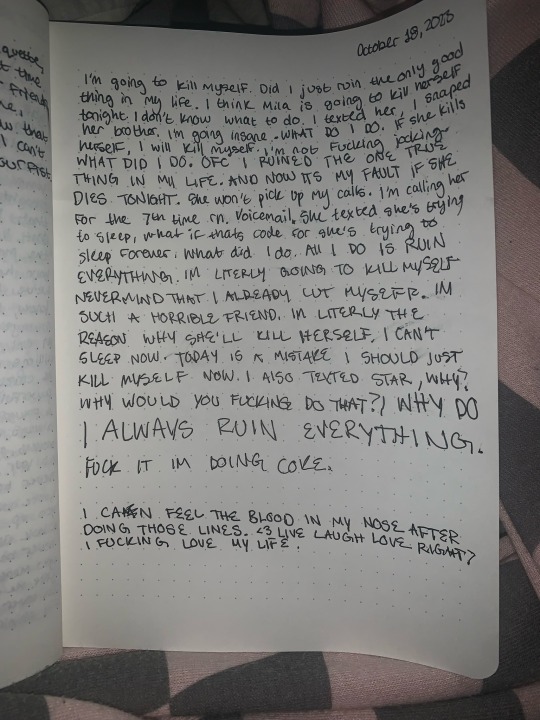 October 18, 2023
I'm going to kill myself. Did I just ruin the only good
thing in my life. I think Mila is going to kill herself
tonight. I don't know what to do. I texted her, I snaped
her brother. I'm going insane. WHAT DO I DO. If she kills
herself, I will kill myself. I'm not fucking joking.
WHAT DID I DO. OFC I RUINED THE ONE TRUE
THING IN MY LIFE. AND NOW ITS MY FAULT IF SHE
DIES TONIGHT. She won't pick up my calls. I'm calling her
for the 7th time rn. Voicemail. She texted she's trying
to sleep, what if thats code for she's trying to
sleep forever. What did I do. All I DO IS RUIN
EVERYTHING. IM LITERLY GOING TO KILL MYSELF
NEVERMIND THAT I ALREADY CUT MYSELF. IM
SUCH A HORRIBLE FRIEND. IM LITERLY THE
REASON WHY SHE'LL KILL HERSELF. I CAN'T
SLEEP NOW. TODAY IS A MISTAKE I SHOULD JUST
KILL MYSELF NOW. I ALSO TEXTED STAR, WHY?
WHY WOULD YOU FUCKING DO THAT?! WHY DO
I ALWAYS RUIN EVERYTHING.
FUCK IT IM DOING COKE.
I CAN FEEL THE BLOOD IN MY NOSE AFTER
DOING THOSE LINES. <3 LIVE LAUGH LOVE RIGHT?
I FUCKING LOVE MY LIFE.